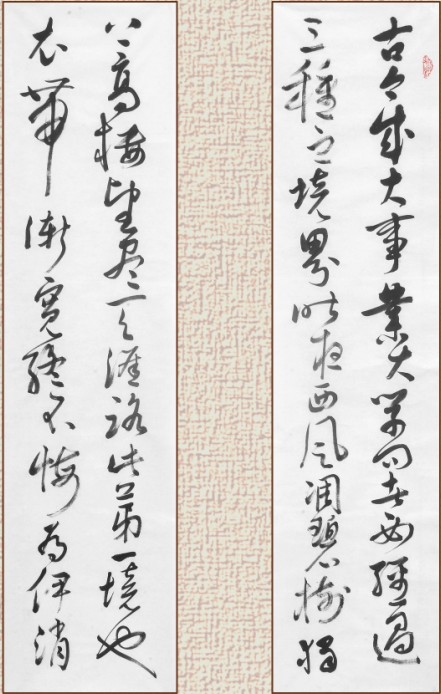 古今成大事業大學問者必經過
三種之境界昨夜西風凋碧樹獨
上高樓望盡天涯路此第一境也
衣帶漸寬終不悔為伊消